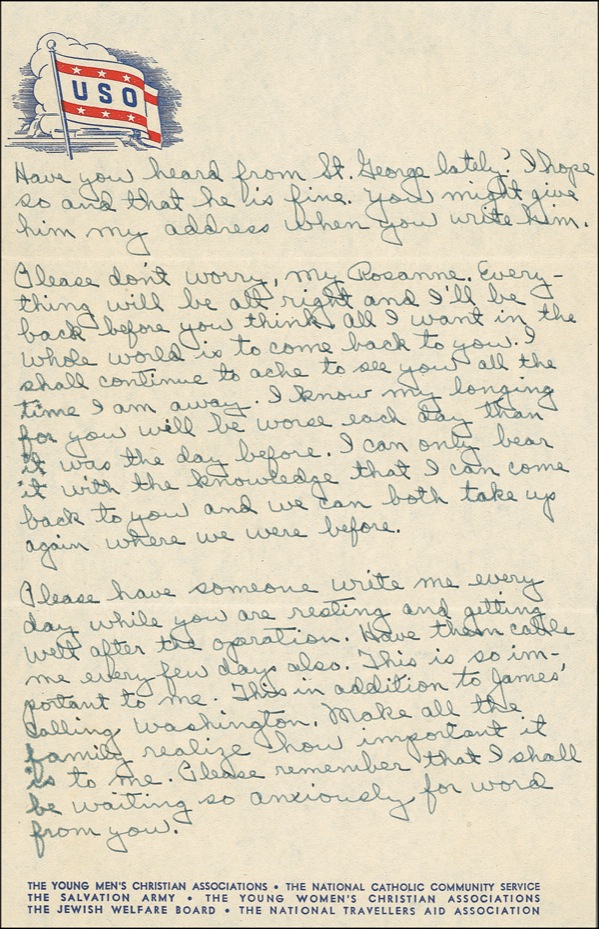 USO
Have you heard from St. George lately? I hope
so and that he is fine. You might give
him my address when you write him.
Please don't worry, my Rosanne. Every-
thing will be all right and I'll be
back before you think. All I want in the
whole world is to come back to you. I
shall continue to ache to see you all the
time I am away. I know my longing
for you will be worse each day than
it was the day before. I can only bear
it with the knowledge that I can come
back to you and we can both take up
again where we were before.
Please have someone write me every
day while you are resting and getting
well after the operation. Have them cable
me every few days also. This is so im-
portant to me. This in addition to James'
calling Washington. Make all the
family realize how important it
is to me. Please remember that I shall
be waiting so anxiously for word
from you.
THE YOUNG MEN'S CHRISTIAN ASSOCIATIONS • THE NATIONAL CATHOLIC COMMUNITY SERVICE
THE SALVATION ARMY • THE YOUNG WOMEN'S CHRISTIAN ASSOCIATIONS
THE JEWISH WELFARE BOARD • THE NATIONAL TRAVELLERS AID ASSOCIATION